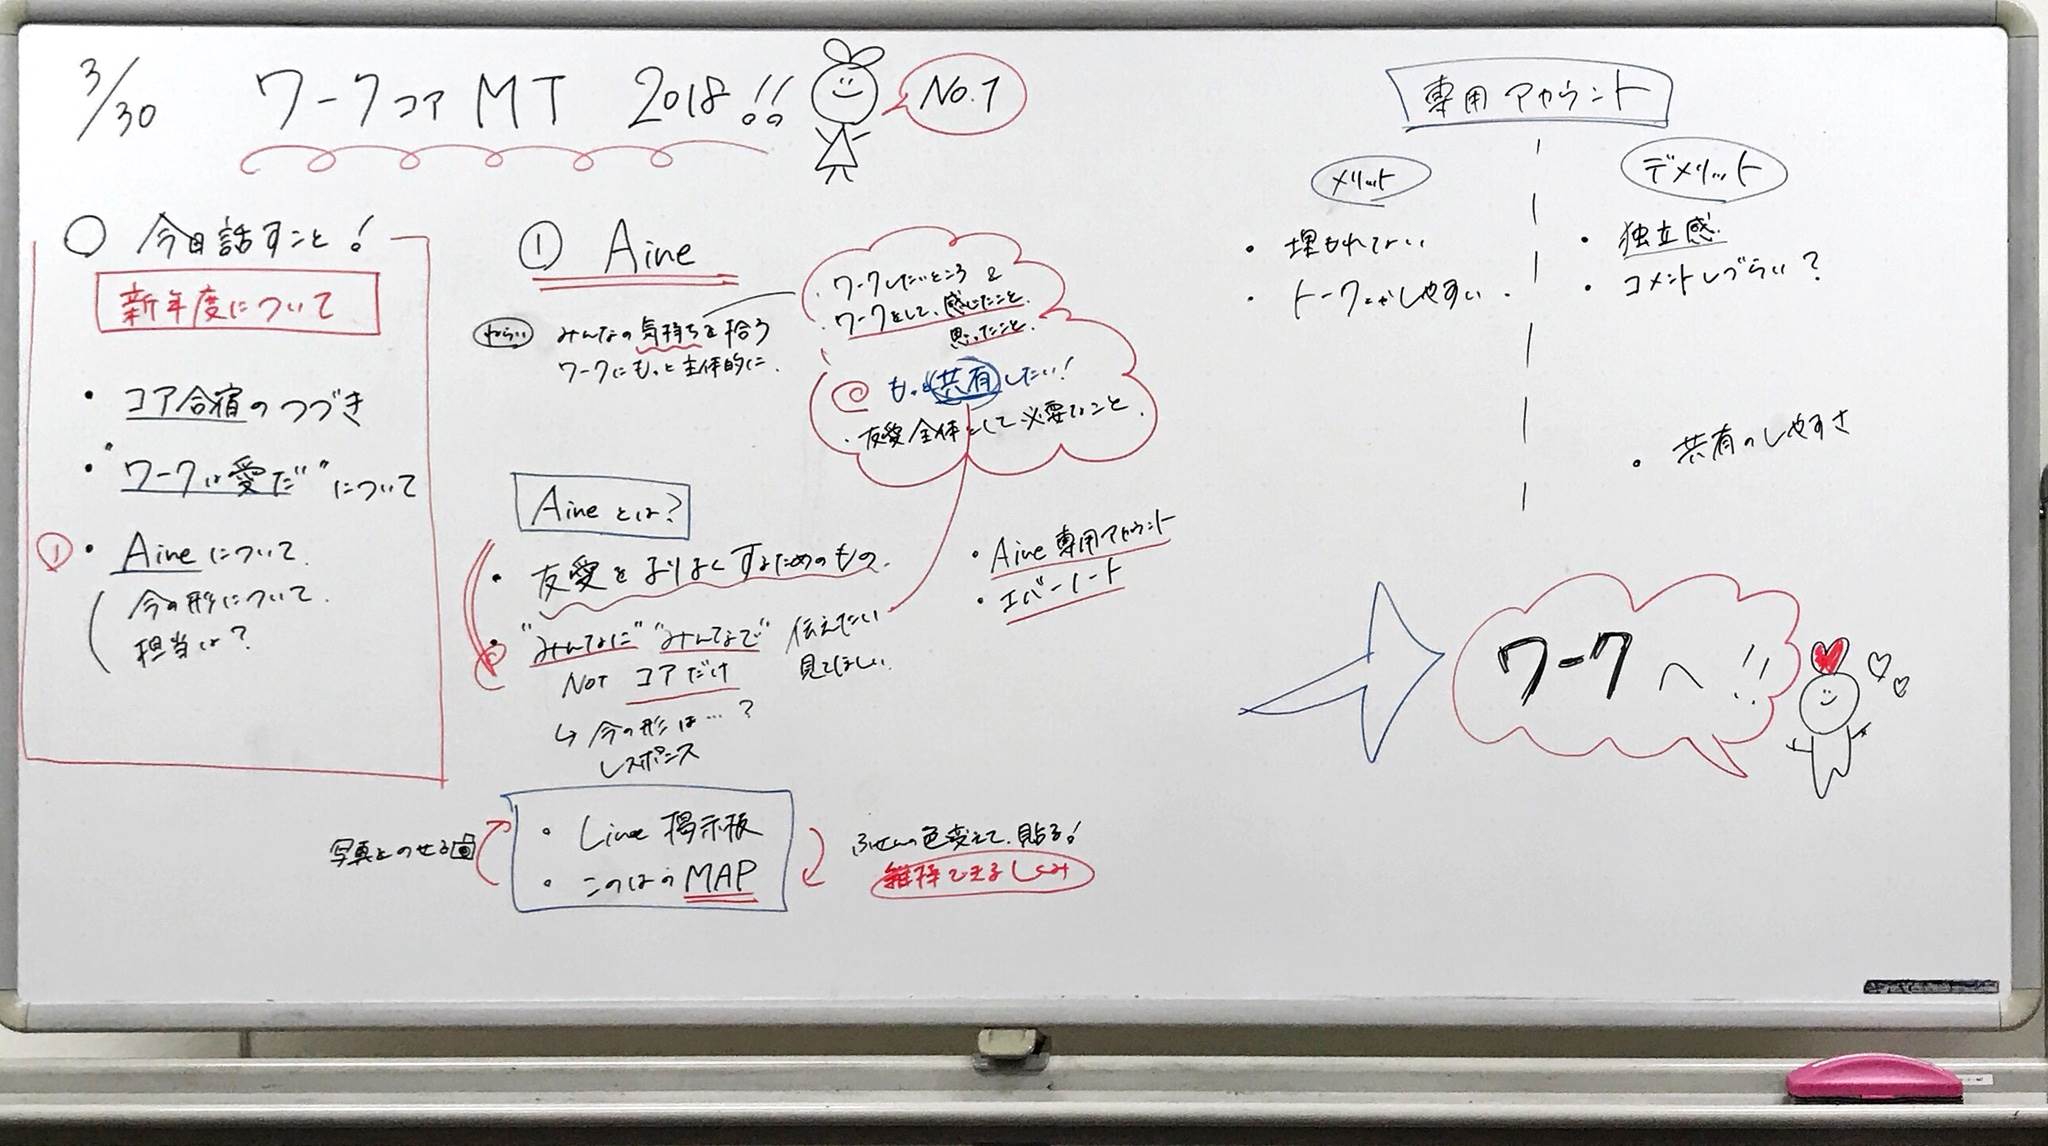 3/30
ワークコア MT 2018!!
No.1
○ 今日話すこと!
新年度について
・コア合宿のつづき
・"ワークは愛だ"について
① ・Aineについて.
今の形について.
担当は?
① Aine
ねらい みんなの気持ちを拾う
ワークにもっと主体的に.
・ワークしたいところ &
・ワークをして、感じたこと.
思ったこと.
もっと共有したい!
・友愛全体として必要なこと.
Aineとは?
・友愛をよりよくするためのもの.
・"みんなに" "みんなで" 伝えたい
見てほしい.
NOT コアだけ
↳ 今の形は…?
レスポンス
・Aine 専用アカウント
・エバーノート
・Line 掲示板
・このはのMAP
写真とのせる
ふせんの色変えて、貼る!
維持できるしくみ
専用アカウント
メリット
・埋もれてない
・トークとかしやすい.
デメリット
・独立感.
・コメントしづらい?
・共有のしやすさ
ワークへ!!